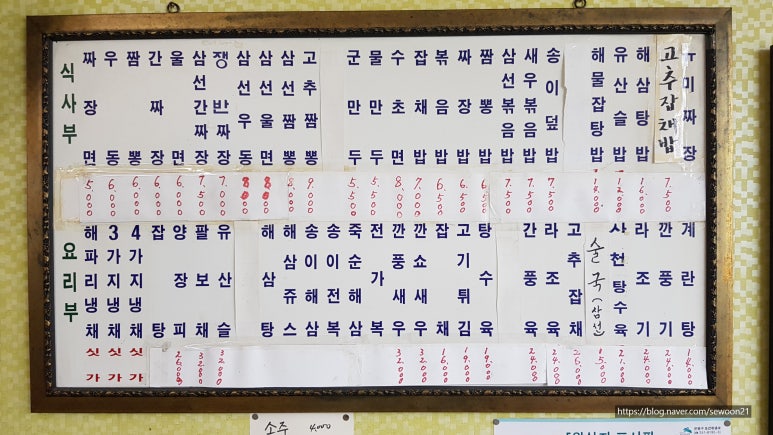 식사부
짜장면 5.000
우동 6.000
짬뽕 6.000
간짜장 6.000
울면 6.000
삼선간짜장 7.500
쟁반짜장 7.000
삼선우동 8.000
삼선울면 8.000
삼선짬뽕 8.000
고추짬뽕 9.000
군만두 5.500
물만두 5.500
수초면 8.000
잡채밥 7.000
볶음밥 6.500
짜장밥 6.500
짬뽕밥 6.500
삼선볶음밥 7.500
새우볶음밥 7.500
송이덮밥 7.500
해물잡탕밥 14.000
유산슬밥 12.000
해삼탕밥 16.000
고추잡채밥 7.500
미짜장
요리부
해파리냉채 싯가
3가지냉채 싯가
4가지냉채 싯가
잡탕
양장피 26.000
팔보채 32.000
유산슬 32.000
해삼탕
해삼쥬스
송이해삼
송이전복
죽순해삼
전가복
깐풍새우 32.000
깐쇼새우 32.000
잡채 16.000
고기튀김 19.000
탕수육 19.000
간풍육 24.000
라조육 24.000
고추잡채 26.000
술국(삼선) 15.000
사천탕수육 21.000
라조기 24.000
깐풍기 24.000
계란탕 14.000
소주 4,000
https://blog.naver.com/sewoon21